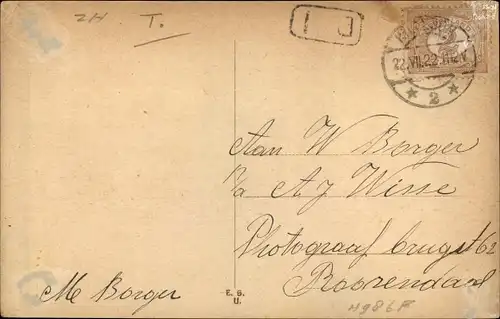 ZH T.
E I
22.VII.22.11-12V
* 2 *
Aan W Borger
p/a A J Wisse
Photograaf brugst 62
Roosendaal
M Borger
E. B.
U.
H986F